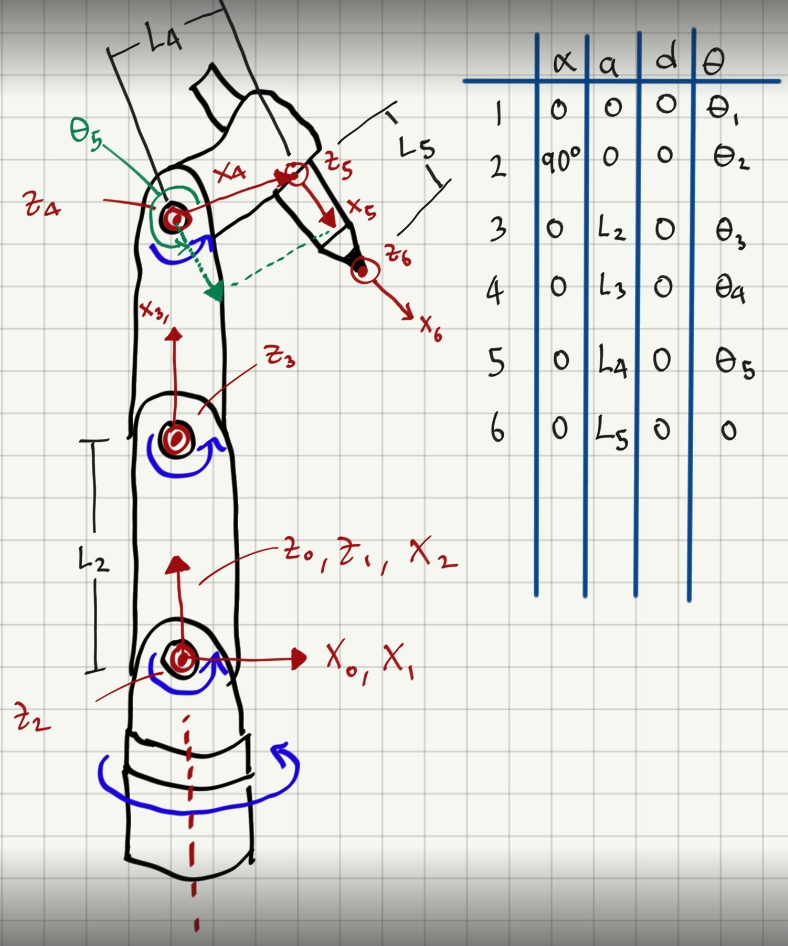 L4
θ5
X4
Z5
L5
Z4
X5
Z6
X3,
X6
Z3
L2
Z0, Z1, X2
X0, X1
Z2
α a d θ
1 0 0 0 θ1
2 90° 0 0 θ2
3 0 L2 0 θ3
4 0 L3 0 θ4
5 0 L4 0 θ5
6 0 L5 0 0